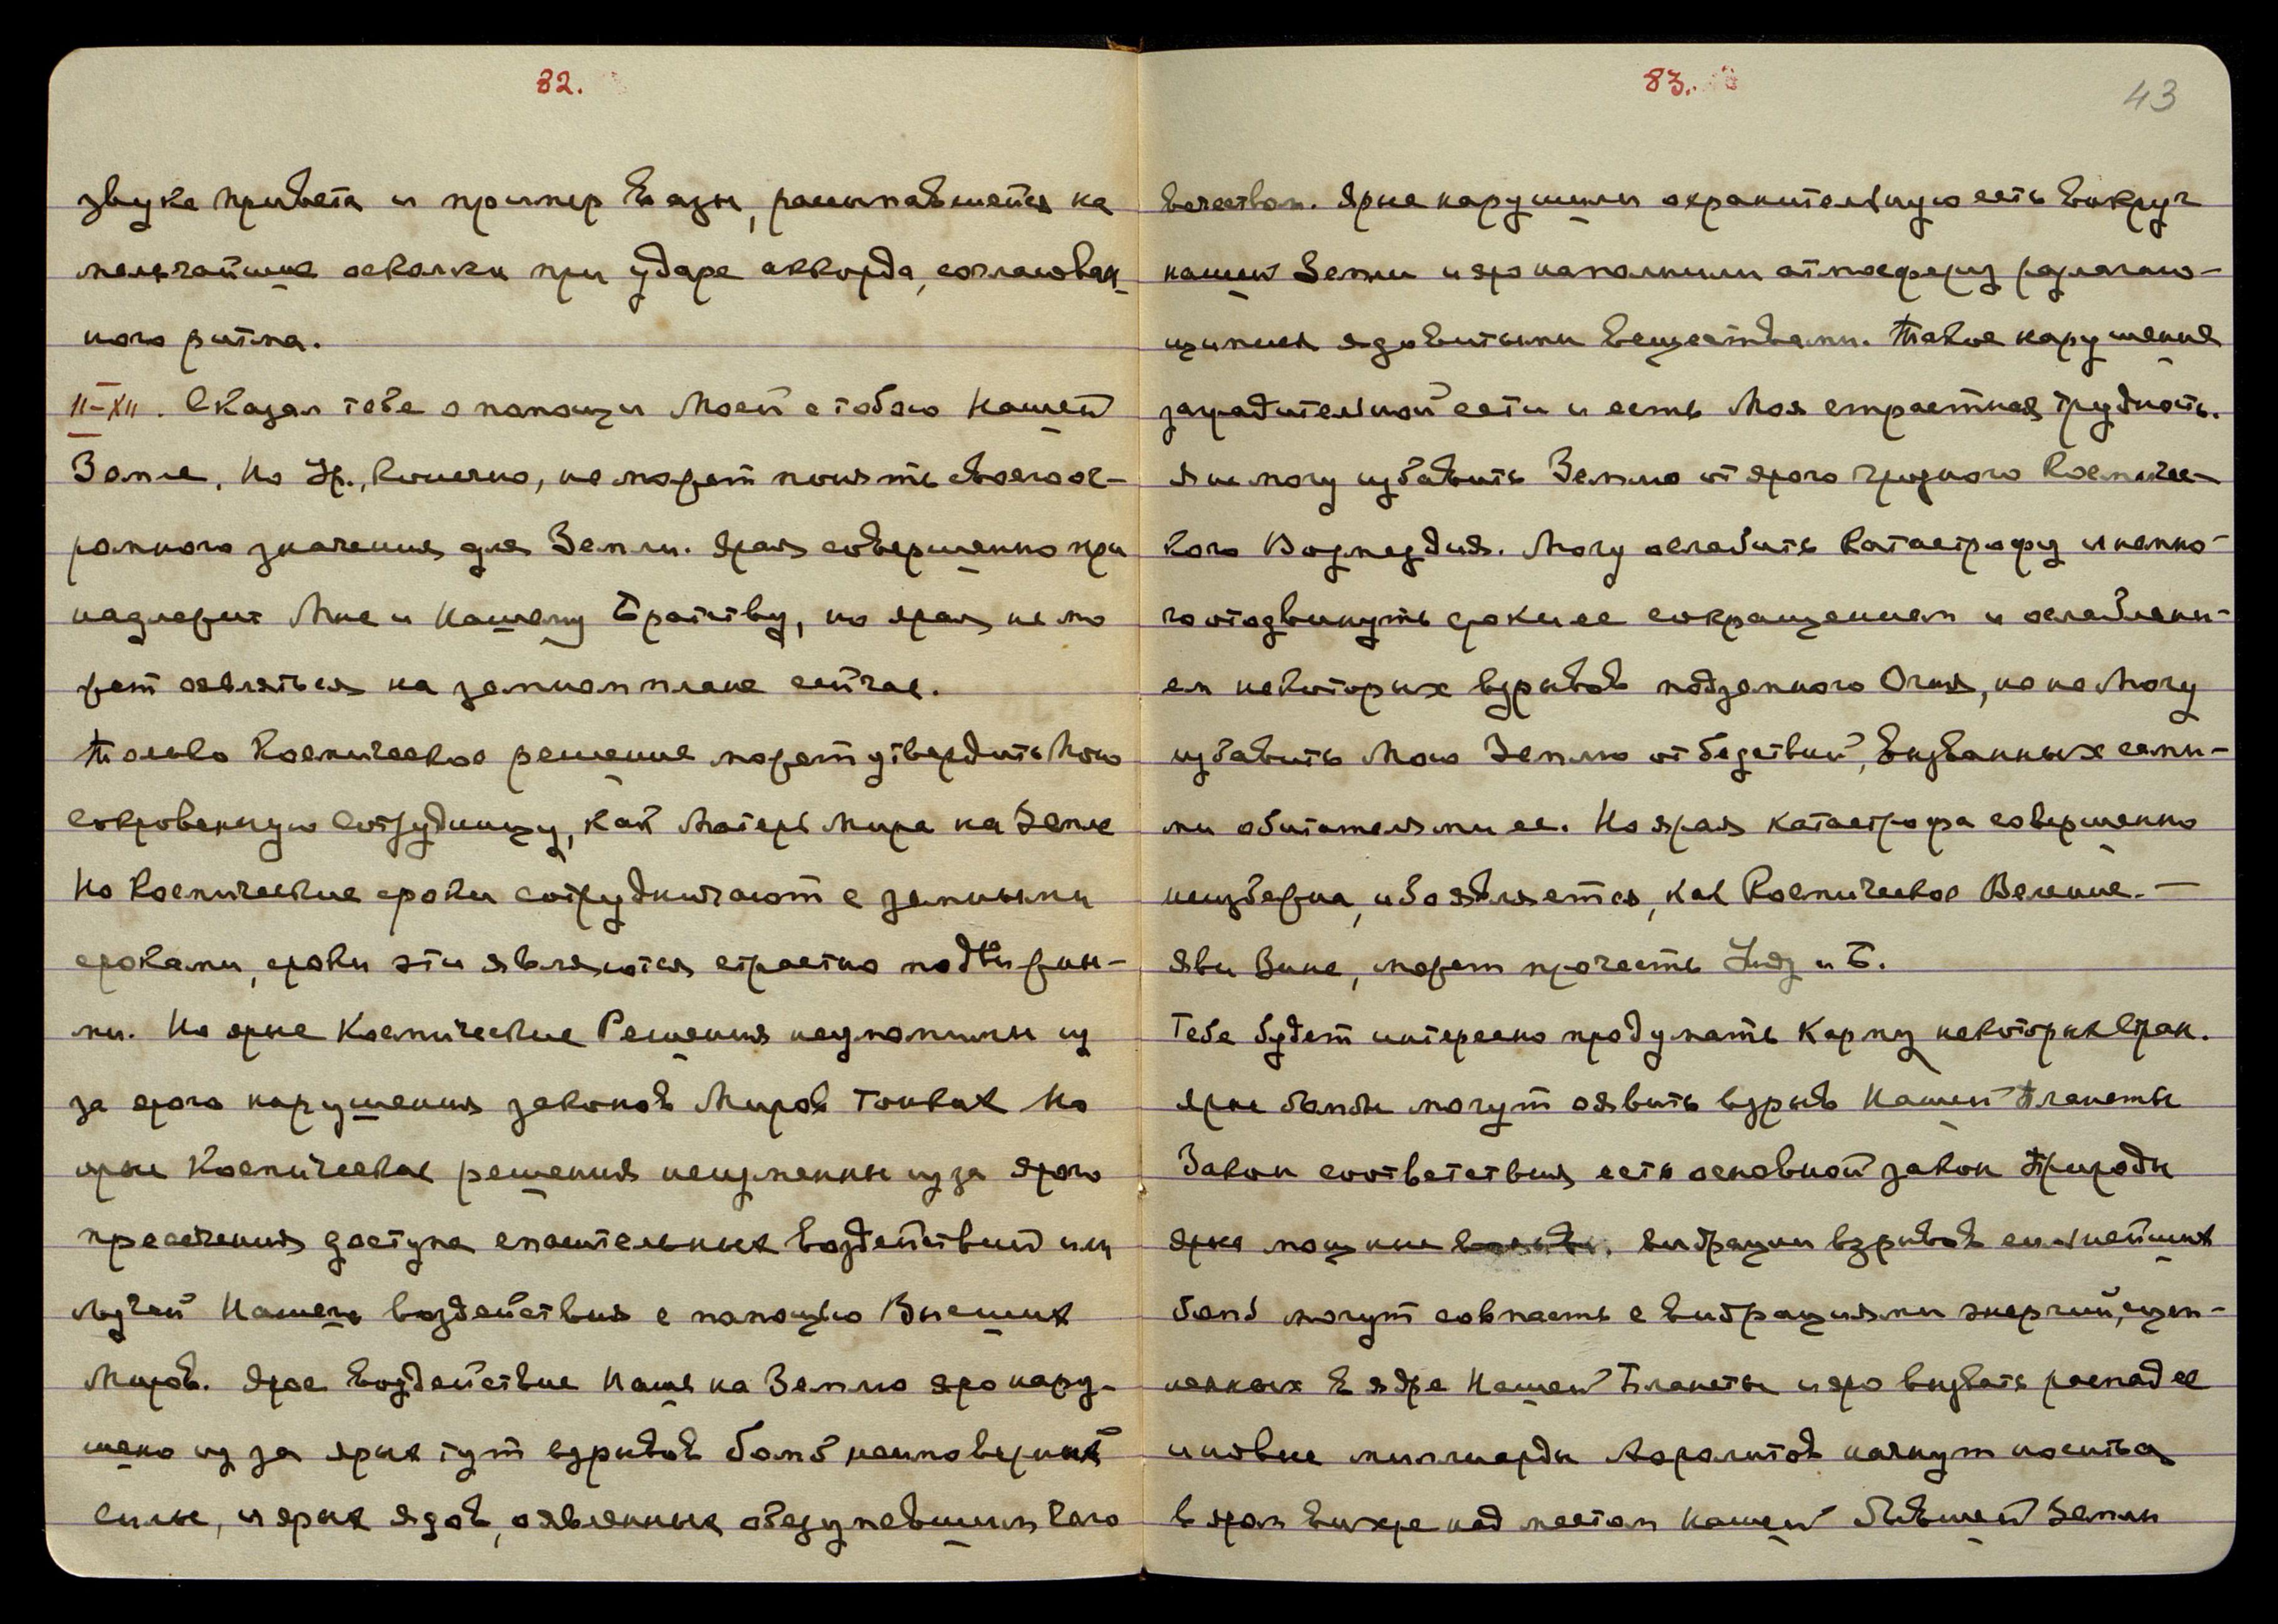 82.
звуке привета и пример вазы, рассыпавшейся на
мельчайшие осколки при ударе аккорда, согласован
ного ритма.
11-XII. Сказал тебе о помощи Моей с тобою Нашей
Земле, но Ур., конечно, не может понять своего ог-
ромного значения для Земли. Ярая совершенно при
надлежит Мне и Нашему Братству, но ярая не мо
жет оявляться на земном плане сейчас.
Только Космическое решение может утвердить Мою
сокровенную Сотрудницу, как Матерь Мира на Земле
Но Космические сроки сотрудничают с земными
сроками, сроки эти являются страстно подвижны-
ми. Но ярые Космические Решения неумолимы из
за ярого нарушения законов Миров тонких Но
ярые Космические решения неизменны из за ярого
пресечения доступа спасительных воздействий или
лучей Нашего воздействия с помощью Высших
Миров. Ярое воздействие Наше на Землю яро нару-
шено из за ярых тут взрывов бомб неимоверных
силы, и ярых ядов, оявленных обезумевшим чело
83.
43
вечеством. Ярые нарушили охранительную сеть вокруг
нашей Земли и яро наполнили атмосферу разлагаю-
щимися ядовитыми веществами. Такое нарушение
заградительной сети и есть Моя страстная трудность.
Я не могу избавить Землю от ярого грозного Космичес-
кого Возмездия. Могу ослабить катастрофу и немно-
го отодвинуть сроки ее сокращением и ослаблени-
ем некоторых взрывов подземного Огня, но не Могу
избавить Мою Землю от бедствий, вызванных сами-
ми обитателями ее. Но ярая катастрофа совершенно
неизбежна, ибо является, как Космическое Веление.—
Яви Зине, может прочесть и Б.
Тебе будет интересно продумать Карму некоторых стран.
Ярые бомбы могут оявить взрыв Нашей Планеты
Закон соответствия есть основной закон Природы
Ярые мощные вибрации взрывов сильнейших
бомб могут совпасть с вибрациями энергий,
в ядре Нашей Планеты и яро вызвать распад ее
и новые миллиарды Аэролитов начнут носиться
в яром вихре над местом нашей бывшей Земли